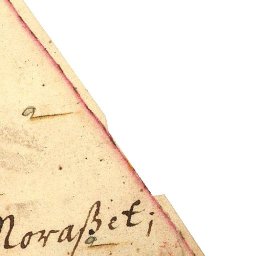 Moraßet;